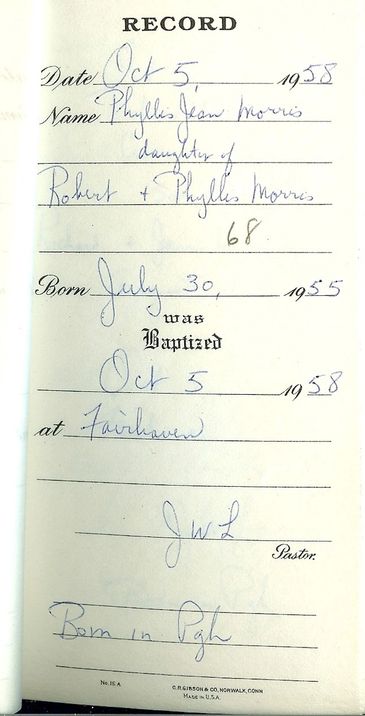 RECORD
Date Oct 5, 1958
Name Phyllis Jean Morris
daughter of
Robert + Phyllis Morris
68
Born July 30, 1955
was
Baptized
Oct 5 1958
at Fairhaven
J W L
Pastor.
Born in Pgh
No. 15 A C.R. GIBSON & CO. NORWALK, CONN
MADE IN U.S.A.